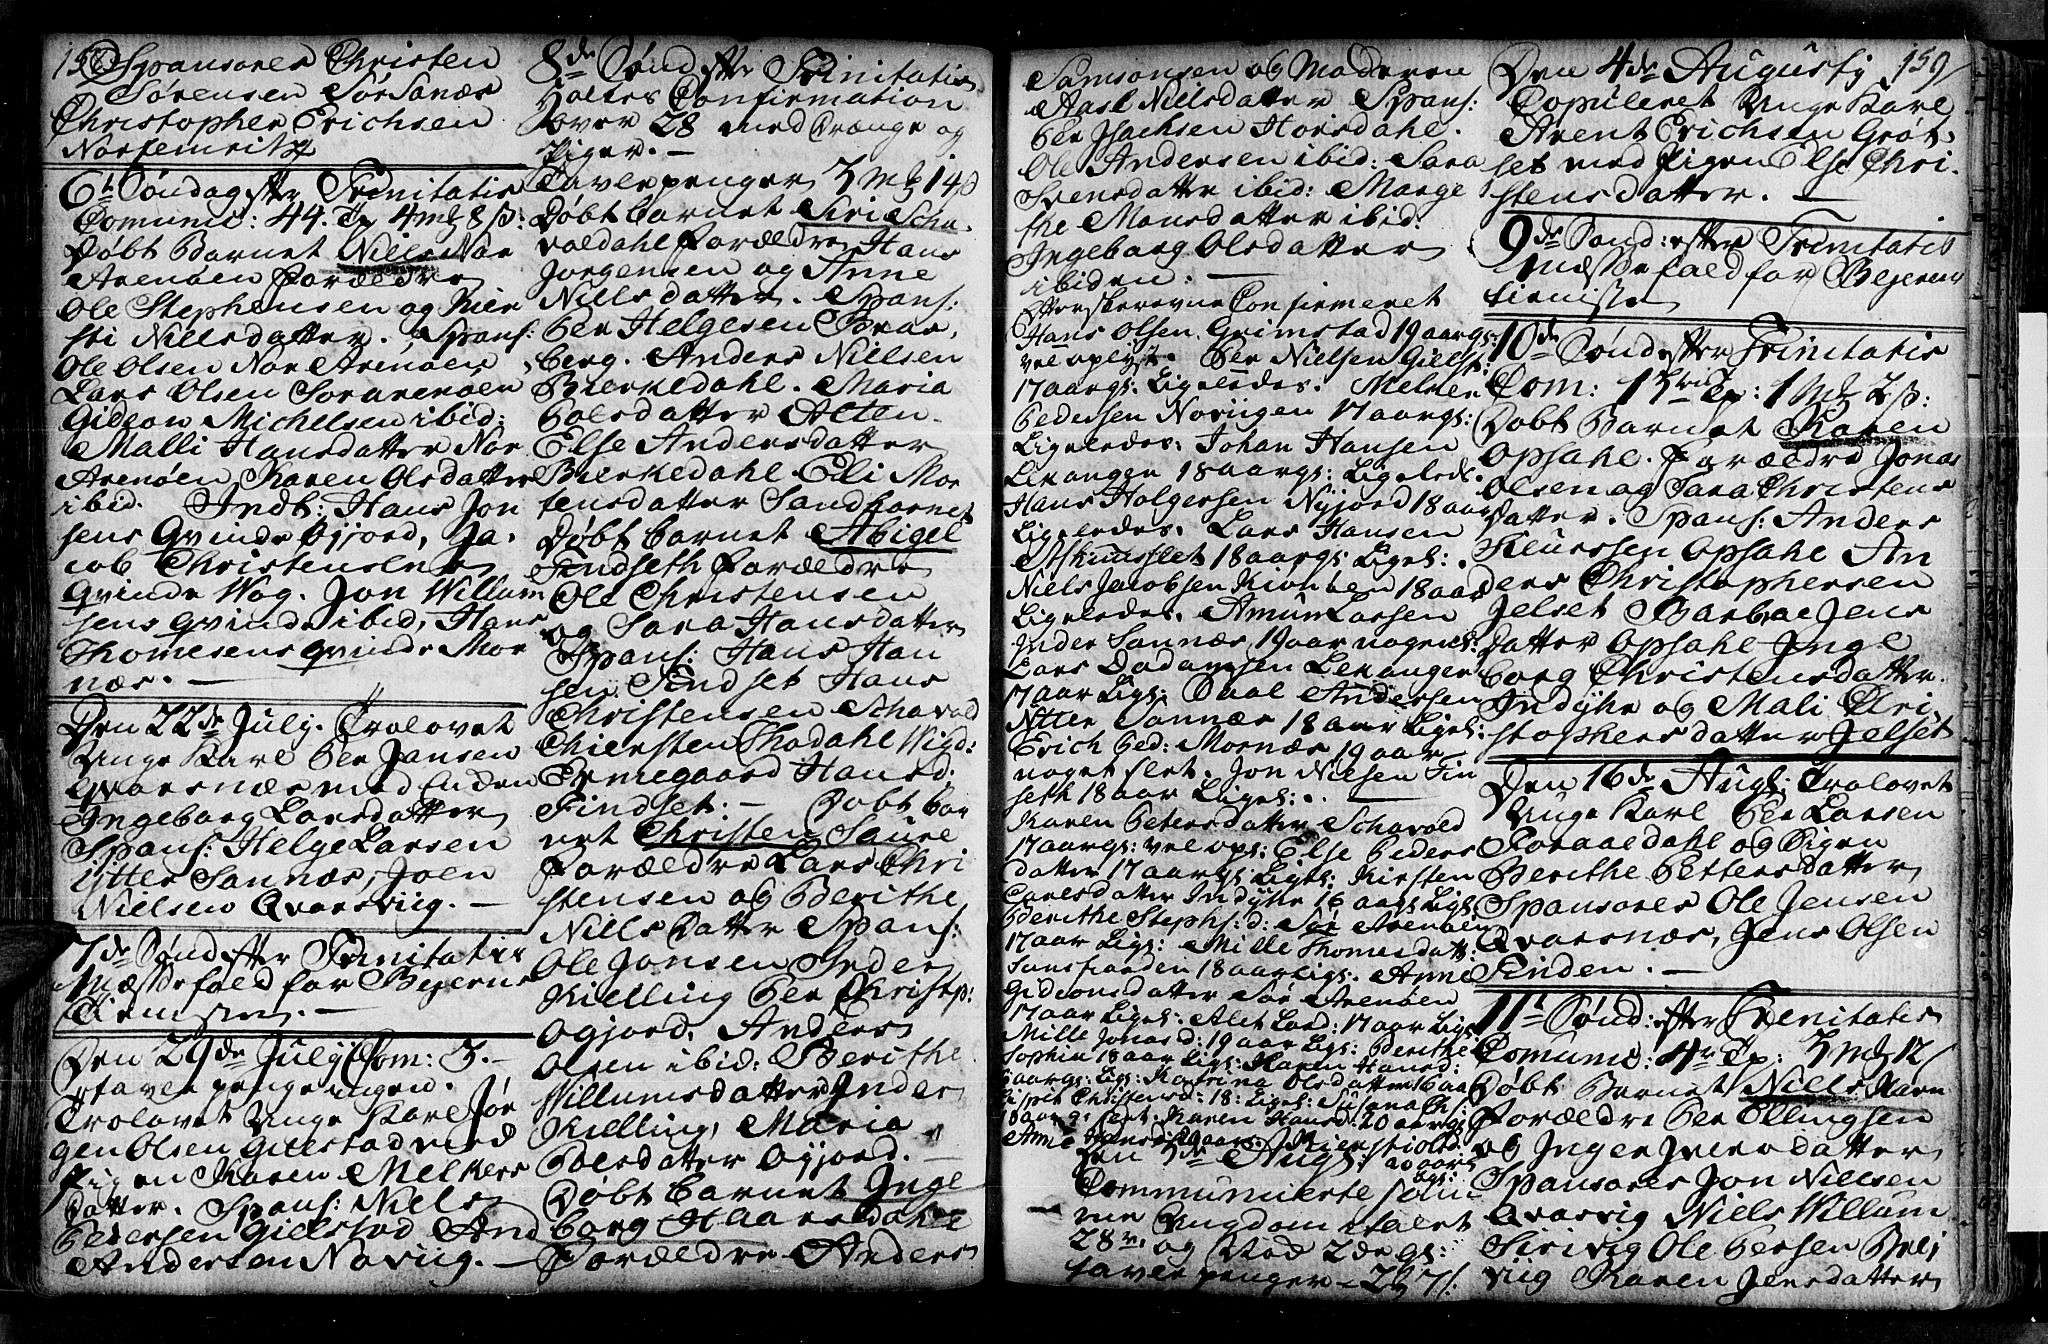 158 Sponsores Christen
Sørensen Sør Sanæs
Christopher Erichsen
6t Søndag efter Trinitatis
Comunic: 44. Tp 4 mk 8 s:
Døbt Barnet Niels Nor
Arenøen Forældre
Ole Stephensen og Kier
sti Nielsdatter. Spans:
Ole Olsen Nor Arenøen
Lars Olsen Sør arenøen
Gideon Michelsen ibid:
Malli Hansdatter Nor
Arenøen Karen Olsdatter
ibid. Indt: Hans Jon
sens Qvinde Ogjord, Ja.
cob Christensens
Qvinde Wog. Jon Willum
sens Qvinde ibid, Hans
Thomesens Qvinde Mor
næs. —
Den 22de July. Trolovet
Unge Karl Per Jansen
Qvarsnæs med Enken
Ingeborg Larsdatter
Spans: Helge Larsen
Ytter Sannæs, Joen
Nielsen Qvarsviig. —
7de Sønd efter Trinitatis
Mæssefald for Bejerns
Den 29de July Com: 3. —
Tavlepenge ingen.
Trolovet Unge Karl Jør
gen Olsen Gillestad med
Pigen Karen Melkers
datter. Spans: Niels
Pedersen Gillestad And
Andersen Noviig. —
8de Sønd efter Trinitatis
Holtes Confirmation
over 28 med Drænge og
Piger. —
Tavlepenger 3 mk 14 s
Døbt Barnet Siri Scha
voldahl Forældre Hans
Jørgensen og Anne
Nielsdatter. Spans:
Per Helgesen Bras,
berg. Anders Nielsen
Bierkedahl. Maria
Polsdatter Alten.
Else Andersdatter
Bierkedahl Eli Mor
tensdatter Sandhornet
Døbt Barnet Abigel
Findseth Forældre
Ole Christensen
og Sara Hansdatter
Spans: Hans Han
sen Findset Hans
Christensen Schavold
Chiersten Thodahl Wigd:
Ermegaard Hansd.
Findset. — Døbt Bar
net Christen Saure
Forældre Lars Chri
stensen og Berithe
Niels Datter Spans:
Ole Jonsen Inder
Kielling Per Christp:
Ogjord, Anders
Olsen ibid: Berithe
Willumsdatter Inder
Kielling, Maria
Polsdatter Ogjord. —
Døbt Barnet Inge
borg Haarsdahl
Forældre Anders
Samsonsen og Moderen
Aasl Nielsdatter Spans:
Per Isachsen Horsdahl.
Ole Andersen ibid: Sara
Svensdatter ibid: Marge
the Monsdatter ibid:
Ingeborg Olsdatter
ibiden. —
Efterskrevne Confirmeret
Hans Olsen Grimstad 19 aargs:
vel oplyst. Per Nielsen Gielst:
17 aargs: Ligeledes. Melker
Pedersen Noviigen 17 aargs:
Ligeledes: Johan Hansen
Lekangen 18 aargs: Ligelede.
Hans Holgersen Nyjord 18 aar
Ligeledes. Lars Hansen
18 aargs: Ligel:
Niels Jacobsen 18 aar
Ligeledes. Amun Larsen
Inder Sannæs 19 aar noget sl:
Lars Lekangen
17 aar Ligs: Paal Andersen
Ytter Sannæs 18 aar Ligel:
Erich Ped: Mornæs 19 aar
noget slet. Jon Nielsen Fin
seth 18 aar Ligel: —
Karen Petersdatter Schavold
17 aargs: vel ops: Else Peders
datter 17 aargs Ligel: Kirsten
Carlsdatter Indyhr 16 aars Ligs:
Berithe Stephs:d: Sør Arenøen
17 aar Ligs: Mille Thomesdatt:
18 aar Ligs: Anne
Gideonsdatter Sør Arenøen
17 aar Ligel: Alet Larsd: 17 aar Ligs
Mille Jonasd: 19 aar Ligs: Berithe
18 aar Ligs: Karen Hansd:
aargs: Ligs: Olsdatter 16 aar
Christensd: 18: Ligel: Susana Ch:
18 aargs slet. Karen Hansd: 20 aargs
Anne Hansd 19 aar: 20 aars
Den 3de Augs:
Communicerte som
me Ungdom staert
28 r. og Vod 2de gs:
tavlepenger — 2 mk 7 s.
Den 4de Augusty 159
Copuleret Unge Karl
Arent Erichsen Grøt
set med Pigen Else Chri.
stensdatter. —
9de Sønd: efter Trinitatis
Mæssefald for Bejerens
10de Sønd efter Trinitatis
Com: Tp: 1 mk 2 s:
Døbt Barnet Karen
Opsahl. Forældre Jonas
Olsen og Sara Christens
Datter. Spans: Anders
Opsahl An
ders Christophersen
Jelset Barbae Jens
datter Opsahl Inge
borg Christensdatter
Indyhr og Mali Chri
stophersdatter Jelset
Den 16de Augs: Trolovet
Unge Karl Per Larsen
og Pigen
Berithe Pettersdatter
Sponsores Ole Jensen
Qvarsnæs, Jens Olsen
Finden. —
11t Sønd: efter Trenitatis
Comunic: 4r Tp: 3 mk 12
Døbt Barnet Niels
Forældre Per Ellingsen
og Inger Iversdatter
Sponsores Jon Nielsen
Qvarvig Niels Willum
Ole Persen Brej
viig Karen Jensdatter